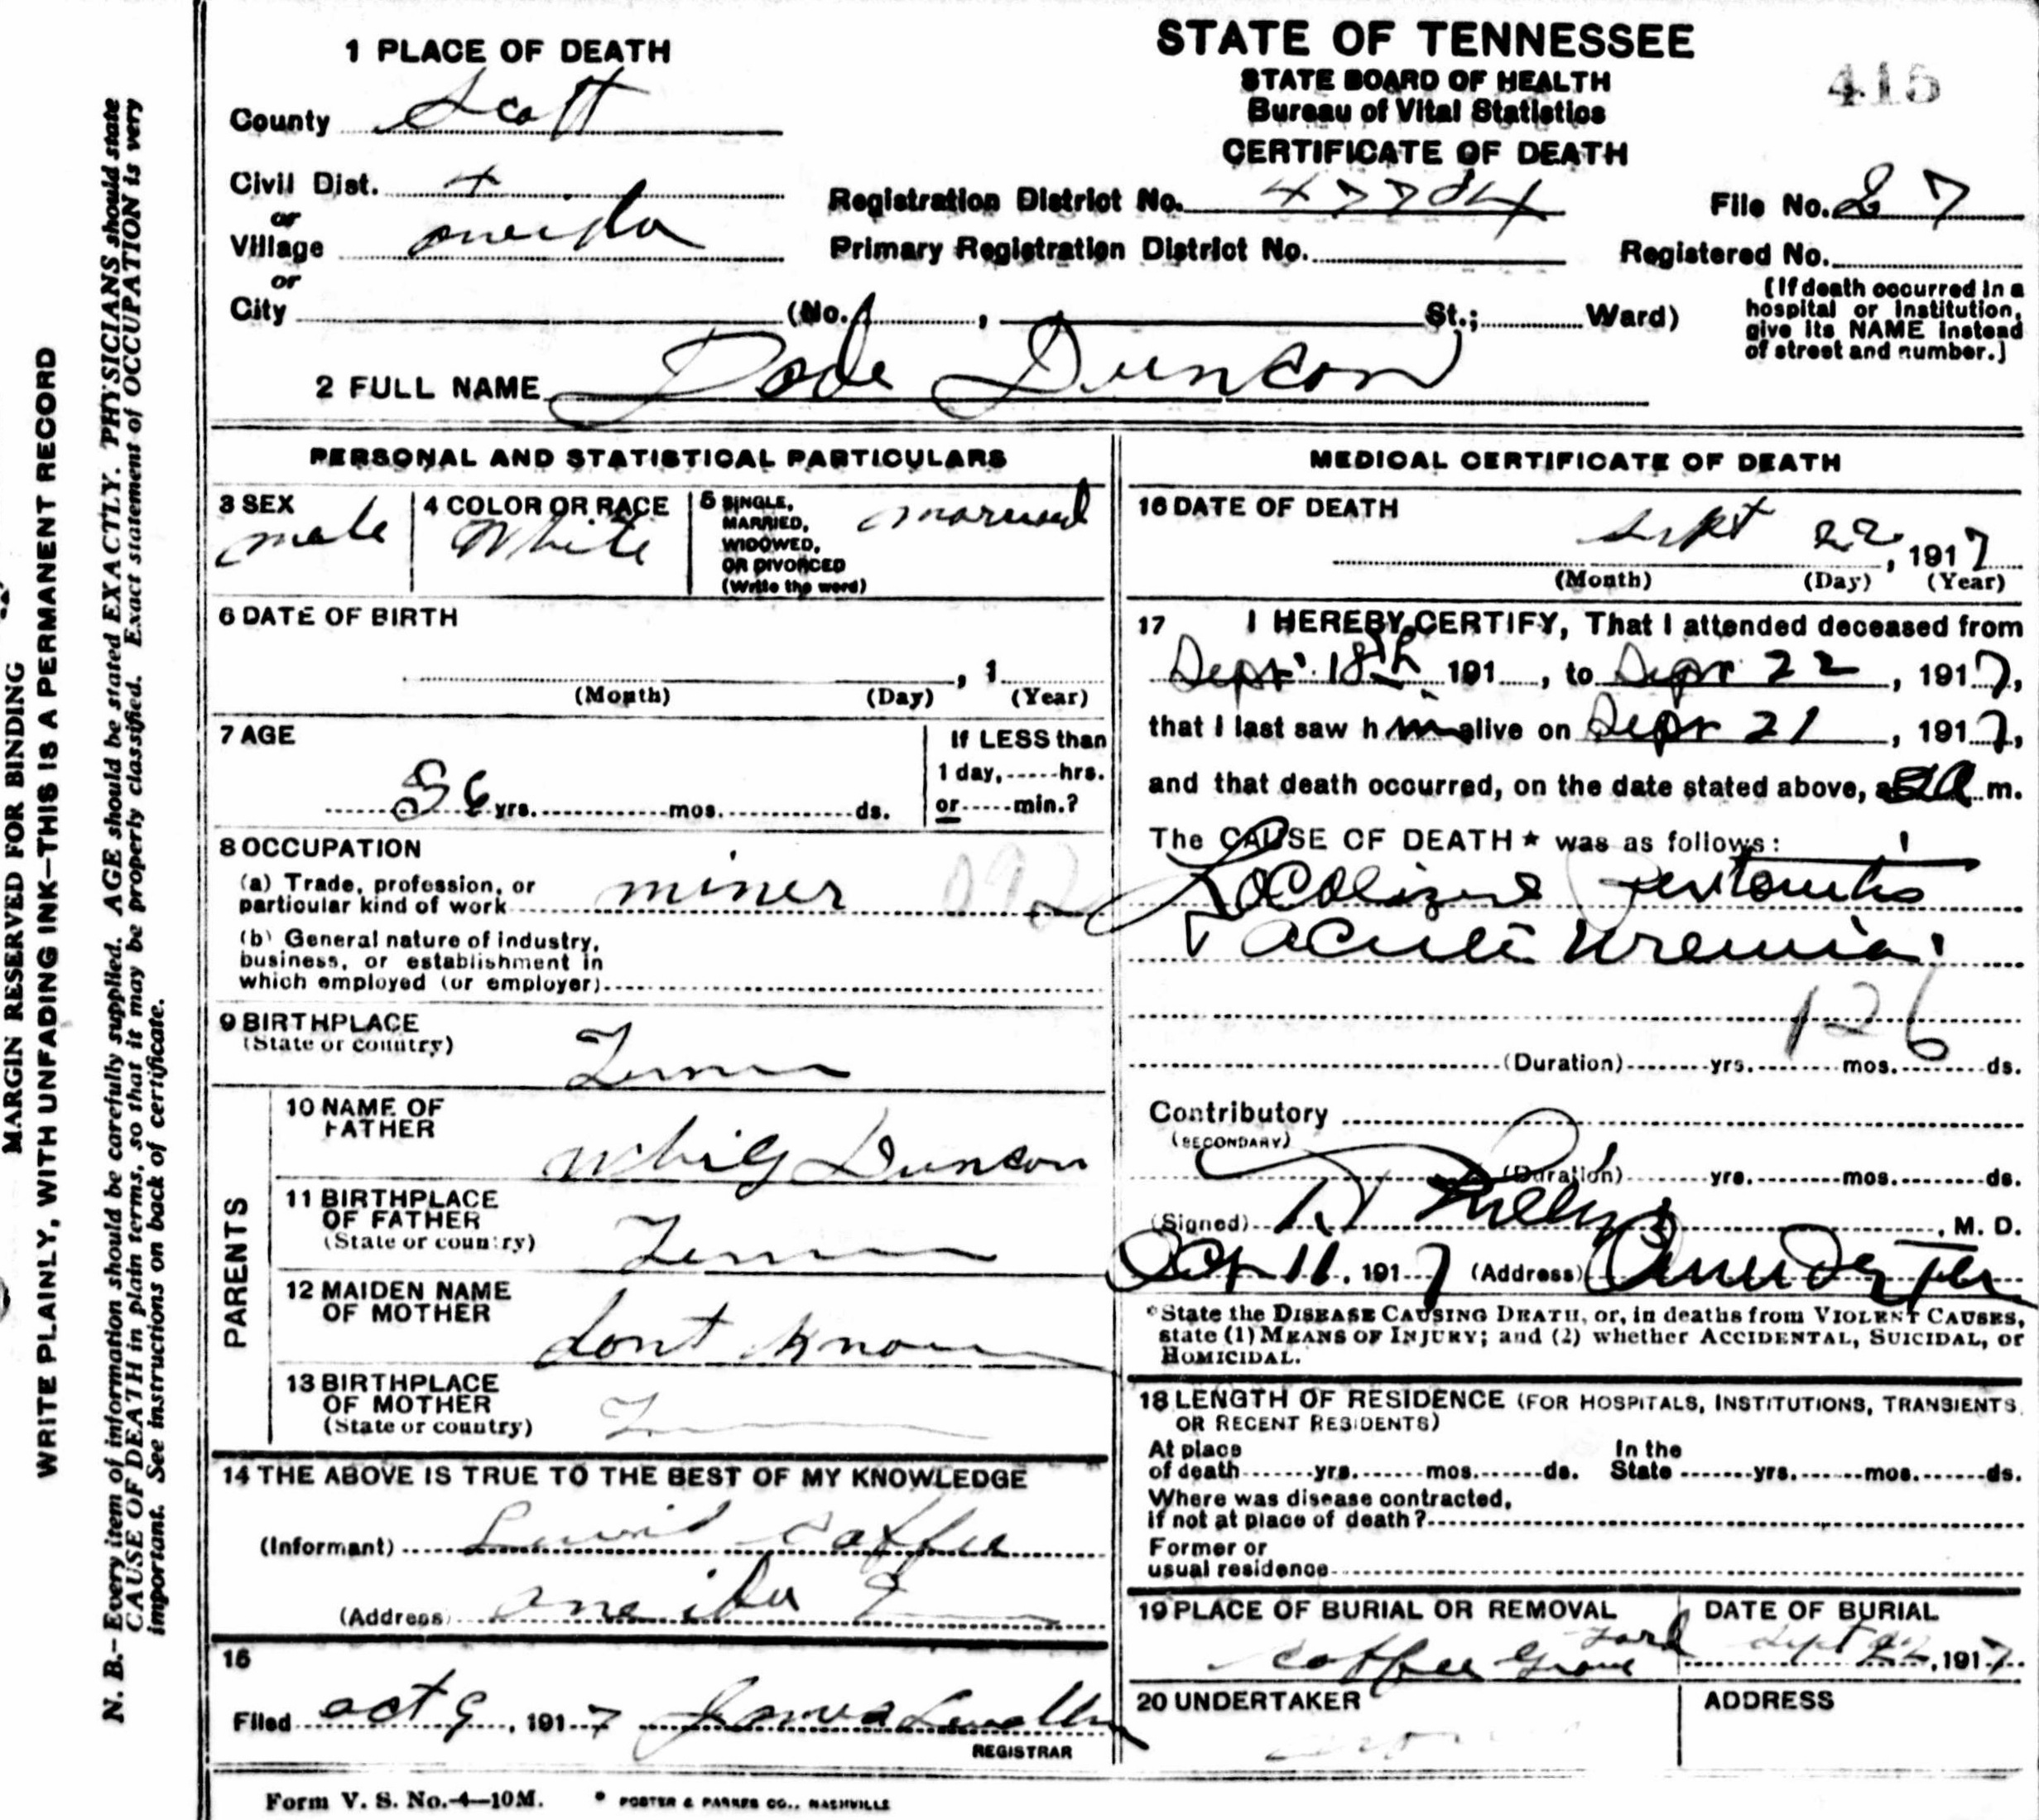 MARGIN RESERVED FOR BINDING
WRITE PLAINLY, WITH UNFADING INK—THIS IS A PERMANENT RECORD
N. B.—Every item of information should be carefully supplied. AGE should be stated EXACTLY. PHYSICIANS should state
CAUSE OF DEATH in plain terms, so that it may be properly classified. Exact statement of OCCUPATION is very
important. See instructions on back of certificate.
1 PLACE OF DEATH
County Scott
Civil Dist. 4
or
Village oneida
or
City (No. , St.; Ward)
STATE OF TENNESSEE
STATE BOARD OF HEALTH
Bureau of Vital Statistics
CERTIFICATE OF DEATH
415
Registration District No.
File No. 27
Primary Registration District No.
Registered No.
[If death occurred in a
hospital or institution,
give its NAME instead
of street and number.]
2 FULL NAME Dode Duncan
PERSONAL AND STATISTICAL PARTICULARS
3 SEX
male
4 COLOR OR RACE
White
5 SINGLE,
MARRIED,
WIDOWED,
OR DIVORCED
(Write the word)
married
6 DATE OF BIRTH
, 1
(Month) (Day) (Year)
7 AGE
56 yrs. mos. ds.
If LESS than
1 day, hrs.
or min.?
8 OCCUPATION
(a) Trade, profession, or
particular kind of work miner 092
(b) General nature of industry,
business, or establishment in
which employed (or employer)
9 BIRTHPLACE
(State or country)
Tenn
PARENTS
10 NAME OF
FATHER
Whig Duncan
11 BIRTHPLACE
OF FATHER
(State or country)
Tenn
12 MAIDEN NAME
OF MOTHER
dont know
13 BIRTHPLACE
OF MOTHER
(State or country)
14 THE ABOVE IS TRUE TO THE BEST OF MY KNOWLEDGE
(Informant) Lewis Coffee
(Address) oneida
15
Filed oct 9, 1917 James Lewallen
REGISTRAR
MEDICAL CERTIFICATE OF DEATH
16 DATE OF DEATH
Sept 22, 1917
(Month) (Day) (Year)
17 I HEREBY CERTIFY, That I attended deceased from
Sept 18th 191 , to Sept 22, 1917,
that I last saw h im alive on Sept 21, 1917,
and that death occurred, on the date stated above, at m.
The CAUSE OF DEATH* was as follows:
Localized Peritonitis
+ acute uremia
126
(Duration) yrs. mos. ds.
Contributory
(SECONDARY)
(Duration) yrs. mos. ds.
(Signed) , M. D.
Oct 11, 1917 (Address) Oneida Ten
*State the DISEASE CAUSING DEATH, or, in deaths from VIOLENT CAUSES,
state (1) MEANS OF INJURY; and (2) whether ACCIDENTAL, SUICIDAL, or
HOMICIDAL.
18 LENGTH OF RESIDENCE (FOR HOSPITALS, INSTITUTIONS, TRANSIENTS,
OR RECENT RESIDENTS)
At place
of death yrs. mos. ds.
In the
State yrs. mos. ds.
Where was disease contracted,
if not at place of death?
Former or
usual residence
19 PLACE OF BURIAL OR REMOVAL
Coffee Grave Yard
DATE OF BURIAL
Sept 22, 1917
20 UNDERTAKER
ADDRESS
Form V. S. No.—4—10M.
FOSTER & PARKES CO., NASHVILLE